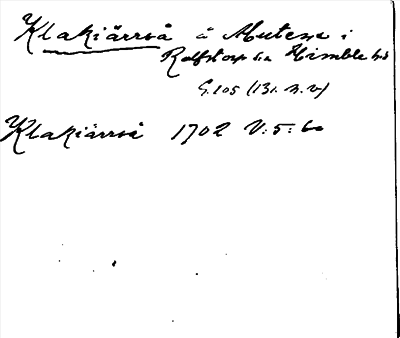 Klakiärrså å Mutene i
Rolfstorp sn Himble hd
G. 105 (131. n. v)
Klakiärrså 1702 V: 5: 60